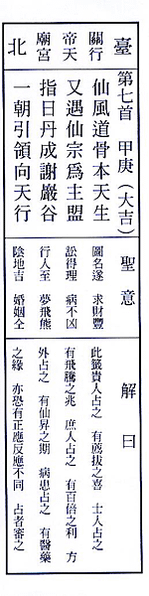 臺北
關行天宮
帝廟
第七首　甲庚（大吉）
仙風道骨本天生
又遇仙宗爲主盟
指日丹成謝巖谷
一朝引領向天行
聖意
圖名遂　求財豐
訟得理　病不凶
行人至　夢飛熊
陰地吉　婚姻仝
解曰
此籤貴人占之　有薦拔之喜　士人占之
有飛騰之兆　庶人占之　有百倍之利　方
外占之　有仙昇之期　病患占之　有醫藥
之緣　亦恐有正應反應不同　占者審之